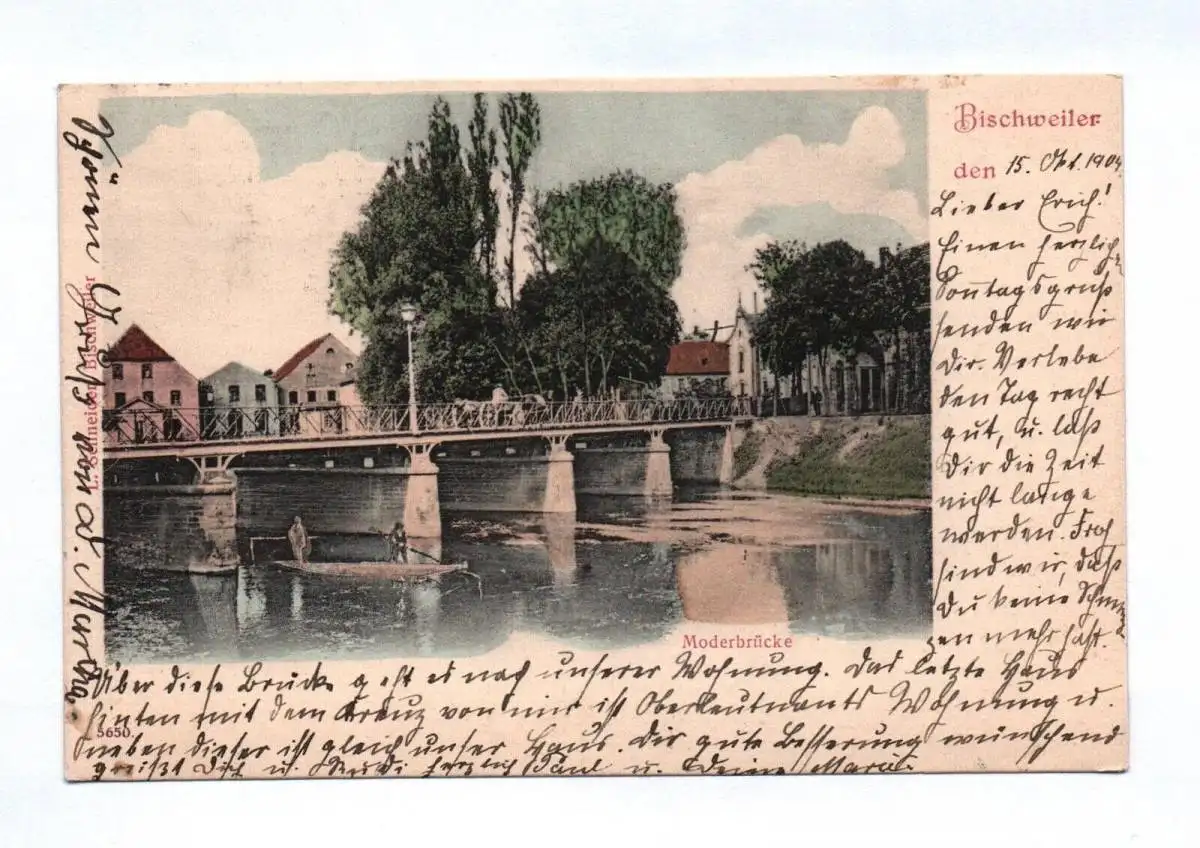 Bischweiler
den 15. Okt. 1904
Lieber Erich!
Einen herzlich
Sonntagsgruß
senden wir
Dir. Verlebe
den Tag recht
gut, u. laß
Dir die Zeit
nicht lange
werden. Froh
sind wir, daß
Du keine Schmer
zen mehr hast.
Moderbrücke
Über diese Brücke geht es nach unserer Wohnung. Das letzte Haus
hinten mit dem Kreuz von mir ist Oberleutnants Wohnung u.
neben dieser ist gleich unser Haus. Dir gute Besserung wünschend
grüßt Dich u. Rudi herzlich Paul u. Deine Marta
5650.
L. Schneider, Bischweiler
u. Gruß von d. Martha